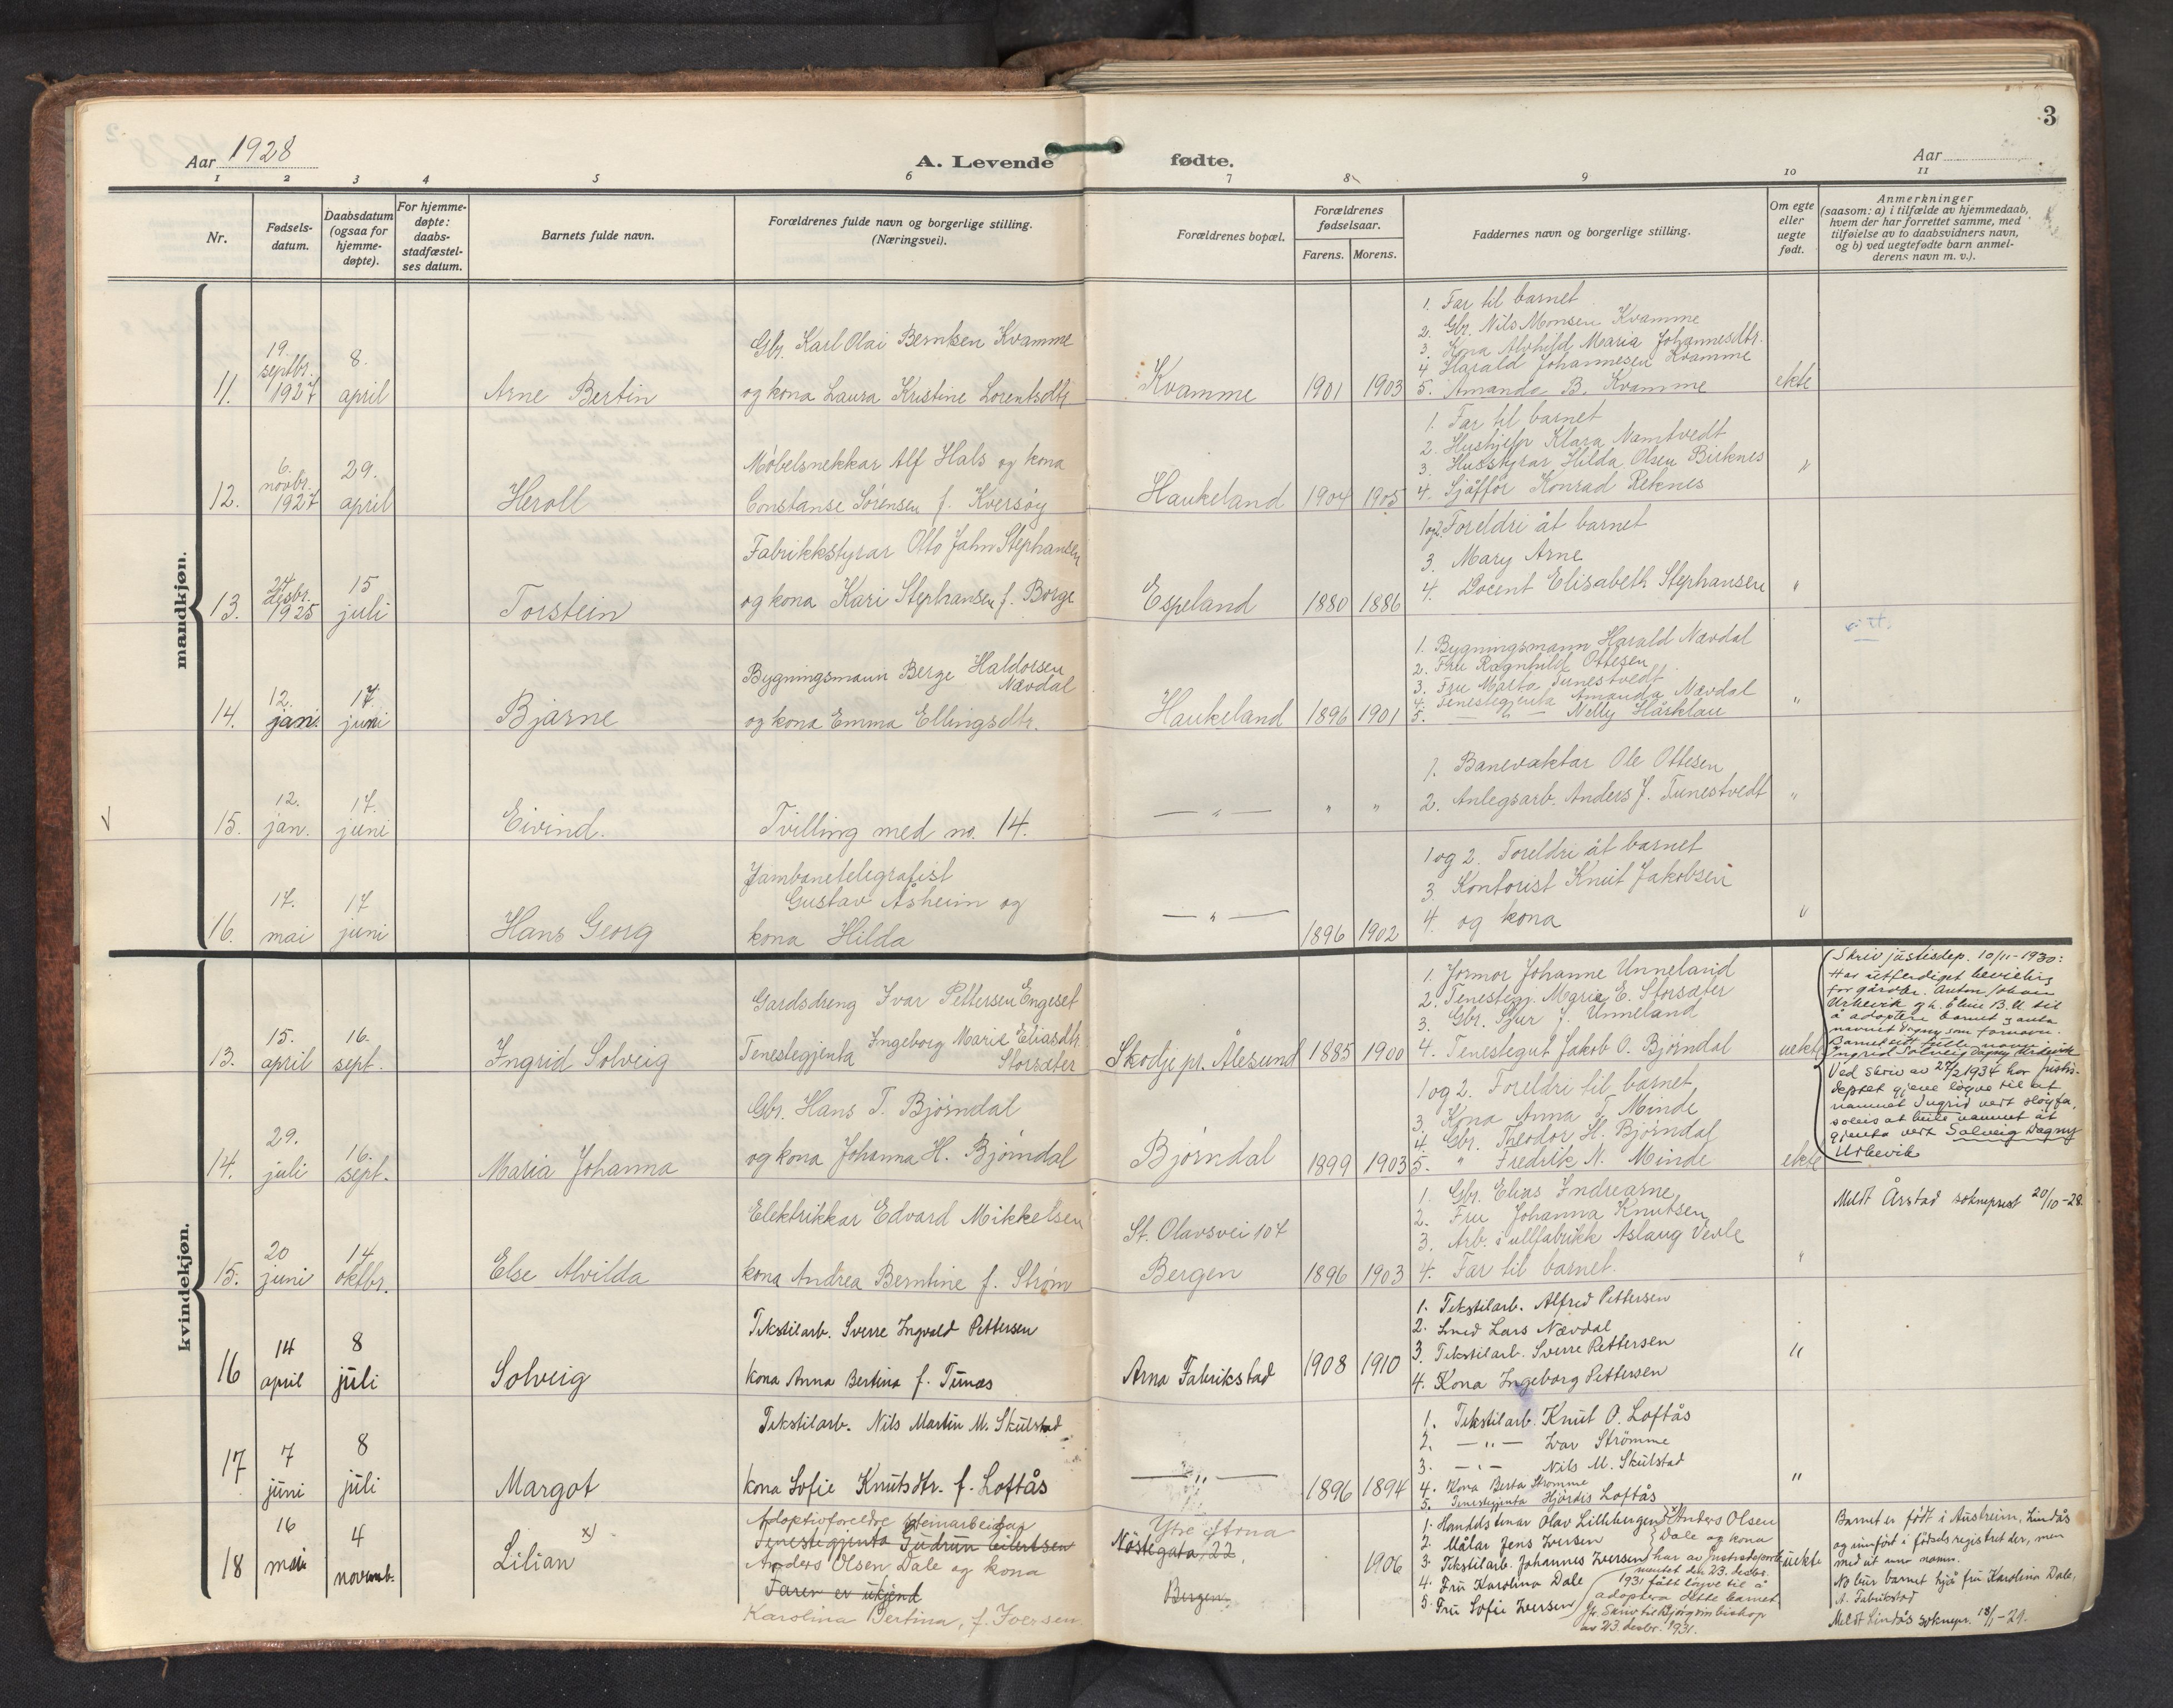 3
Aar 1928
A. Levende fødte.
Aar
1 2 3 4 5 6 7 8 9 10 11
Nr.
Fødsels-
datum.
Daabsdatum
(ogsaa for
hjemme-
døpte).
For hjemme-
døpte:
daabs-
stadfæstel-
ses datum.
Barnets fulde navn.
Forældrenes fulde navn og borgerlige stilling.
(Næringsvei).
Forældrenes bopæl.
Forældrenes
fødselsaar.
Farens. Morens.
Faddernes navn og borgerlige stilling.
Om egte
eller
uegte
født.
Anmerkninger
(saasom: a) i tilfælde av hjemmedaab,
hvem der har forrettet samme, med
tilføielse av to daabsvidners navn,
og b) ved uegtefødte barn anmel-
derens navn m. v.).
mandkjøn.
11.
19.
septbr.
1927
8.
april
Arne Bertin
Gbr. Karl Olai Berntsen Kvamme
og kona Laura Kristine Lorentsdtr
Kvamme
1901 1903
1. Far til barnet
2. Gbr. Nils Monsen Kvamme
3. Kona Alvhild Maria Johannesdtr.
4 Harald Johannesen Kvamme
5. Amanda B. Kvamme
ekte
12.
6.
novbr.
1927
29.
april
Heroll
Møbelsnekkar Alf Hals og kona
Constanse Sørensen f. Kversøy
Haukeland
1904 1905
1. Far til barnet
2. Hushjelp Klara Namtvedt
3. Husstyrar Hilda Olsen Birknes
4. Sjåffør Konrad Reknes
"
13.
24
desbr.
1925
15
juli
Torstein
Fabrikkstyrar Otto Jahn Stephansen
og kona Kari Stephansen f. Borge
Espeland
1880 1886
1og2. Foreldri åt barnet
3. Mary Arne
4. Docent Elisabeth Stephansen
"
14.
12.
jani.
17.
juni
Bjarne
Bygningsmann Berge Haldorsen
Nævdal
og kona Emma Ellingsdtr.
Haukeland
1896 1901
1. Bygningsmann Harald Nævdal
2. Fru Ragnhild Ottesen
3. Fru Marta Tunestvedt
4. Tenestegjenta Amanda Nævdal
5. — " — Nelly Hårklau
"
15.
12.
jan.
17.
juni
Eivind.
Tvilling med no. 14.
— " —
" "
1. Banevaktar Ole Ottesen
2. Anlegsarb. Anders J. Tunestvedt
"
16.
17.
mai
17
juni
Hans Georg
Jambanetelegrafist
Gustav Åsheim og
kona Hilda
— " —
1896 1902
1 og 2. Foreldri åt barnet
3. Kontorist Knut Jakobsen
4. og kona
"
kvindekjøn.
13.
15.
april
16.
sept.
Ingrid Solveig
Gardsdreng Ivar Pettersen Engeset
Tenestegjenta Ingeborg Marie Eliasdtr.
Storsæter
Skodje pr. Ålesund
1885 1900
1. Formor Johanne Unneland
2. Tenestegj. Marie E. Storsæter
3. Gbr. Sjur J. Unneland
4. Tenestegut Jakob O. Bjørndal
uekte
Skriv justisdep. 10/11-1930:
Har utferdiget bevilling
for gårdbr. Anton Johan
Urkevik og h. Eline B. U. til
å adoptere barnet og anta
navnet Dagny som fornavn.
Barnets fulle navn:
Ingrid Solveig Dagny Urkevik
Ved skriv av 27/2 1934 har justis-
deptet gjeve løgve til at
namnet Ingrid vert sløyfa,
soleis at heile namnet åt
gjenta vert Solveig Dagny
Urkevik
14.
29.
juli
16.
sept.
Maria Johanna
Gbr. Hans T. Bjørndal
og kona Johanna H. Bjørndal
Bjørndal
1899 1903
1 og 2. Foreldri til barnet
3. Kona Anna T. Minde
4. Gbr. Theodor H. Bjørndal
5. " Fredrik N. Minde
ekte
15.
20
juni
14.
oktbr.
Else Alvilda
Elektrikkar Edvard Mikkelsen
kona Andrea Berntine f. Strøm
St. Olavsvei 104
Bergen
1896 1903
1. Gbr. Elias Indrearne
2. Fru Johanna Knutsen
3. Arb. i ullfabrikk Aslaug Vevle
4. Far til barnet.
"
Meldt Årstad sokneprest 20/10-28.
16
14
april
8
juli
Solveig
Tekstilarb. Sverre Ingvald Pettersen
kona Anna Bertina f. Tunes
Arna Fabrikstad
1908 1910
1. Tekstilarb. Alfred Pettersen
2. Smed Lars Nævdal
3. Tekstilarb. Sverre Pettersen
4. Kona Ingeborg Pettersen
"
17
7
juni
8
juli
Margot
Tekstilarb. Nils Martin M. Skulstad
kona Sofie Knutsdtr. f. Loftås
— " —
1896 1894
1. Tekstilarb. Knut O. Loftås
2. — " — Ivar Strömme
3. — " — Nils M. Skulstad
4. Kona Berta Strømme
5. Tenestegjenta Hjördis Loftås
"
18
16
mai
4
novemb.
Lilian x)
Adoptivforeldre Steinarbeidar
Tenestegjenta Gudrun Eilertsen
Anders Olsen Dale og kona
Faren er ukjend
Karolina Bertina, f. Iversen.
Ytre Arna
Nöstegata 22,
Bergen.
1906
1. Handelsmar Olav Lillebergen
2. Målar Jens Iversen
3. Tekstilarb. Johannes Iversen
4. Fru Karolina Dale
5. Fru Sofie Iversen
x Anders Olsen
Dale og kona
har av Justisdeparte-
mentet den 23. desbr.
1931 fått løyve til å
adoptera dette barnet
Jfr. Skriv til Bjørgvin biskop
av 23. desbr. 1931.
uekte
Barnet er født i Austreim, Lindås
og innført i fødselsregistret der, men
med ut anna namn.
No bur barnet hjå fru Karolina Dale,
A. Fabrikstad
Meldt Lindås soknepr. 18/1-29.